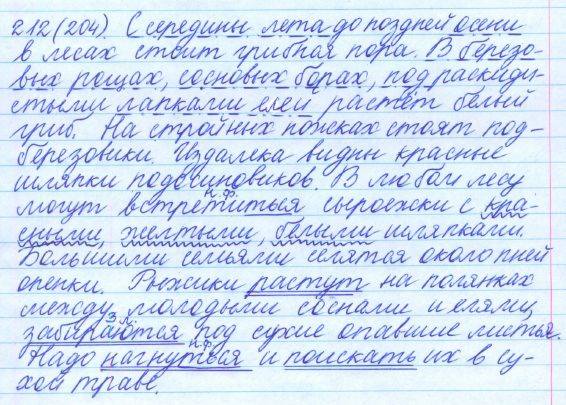 212(204). С середины лета до поздней осени
в лесах стоит грибная пора. В березо-
вых рощах, сосновых борах, под раскиди-
стыми лапками елей растёт белый
гриб. На стройных ножках стоят под-
березовики. Издалека видны красные
шляпки подосиновиков. В любом лесу
н.ф.
могут встретиться сыроежки с кра-
сными, желтыми, белыми шляпками.
Большими семьями селятся около пней
опенки. Рыжики растут на полянках
между молодыми соснами и елями,
3 л.
забираются под сухие опавшие листья.
н.ф.
Надо нагнуться и поискать их в су-
хой траве.